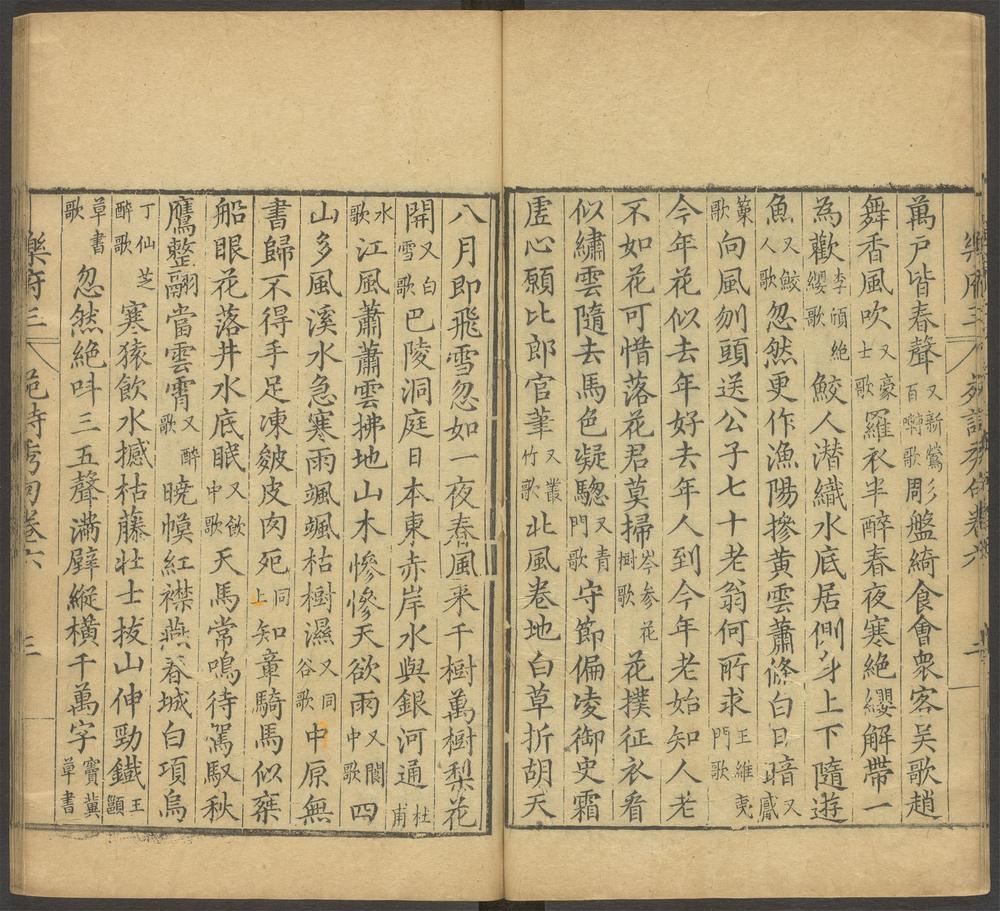 萬戶皆春聲又新鶯百囀歌彫盤綺食會衆客吳歌趙
舞香風吹又豪士歌羅衣半醉春夜寒絶纓解帶一
為歡李頎絶纓歌鮫人潜織水底居側身上下隨遊
魚又鮫人歌忽然更作漁陽摻黃雲蕭條白日暗又觱
篥歌向風刎頭送公子七十老翁何所求王維夷門歌
今年花似去年好去年人到今年老始知人老
不如花可惜落花君莫掃岑参花樹歌花撲征衣看
似繡雲隨去馬色凝驄又青門歌守節偏凌御史霜
虚心願比郎官筆又叢竹歌北風卷地白草折胡天
八月即飛雪忽如一夜春風来千樹萬樹梨花
開又白雪歌巴陵洞庭日本東赤岸水與銀河通杜甫
水歌江風蕭蕭雲拂地山木慘慘天欲雨又閬中歌四
山多風溪水急寒雨颯颯枯樹濕又同谷歌中原無
書歸不得手足凍皴皮肉死同上知章騎馬似乗
船眼花落井水底眠又飲中歌天馬常鳴待駕馭秋
鷹整翮當雲霄又醉歌曉幙紅襟燕春城白項烏
丁仙芝醉歌寒猿飲水撼枯藤壯士拔山伸勁鐵王顒
草書歌忽然絶呌三五聲滿壁縱橫千萬字竇冀草書
樂府三 卷六 三